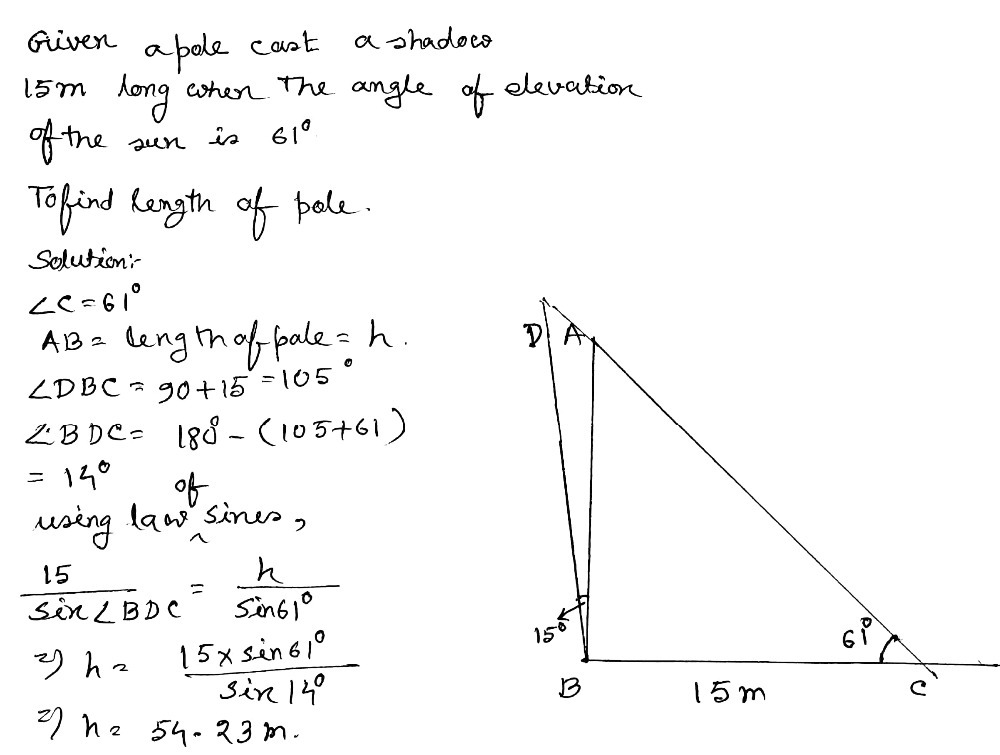 Given a pole cast a shadow
15m long when The angle of elevation
of the sun is 61°
To find length of pole.
Solution:-
∠C = 61°
AB = length of pole = h.
∠DBC = 90+15 = 105°
∠BDC = 180° - (105+61)
= 14°
using law of sines,
15 / sin∠BDC = h / sin61°
⇒ h = 15 x sin61° / sin14°
⇒ h = 54.23 m.
D A
15° 61°
B 15m C